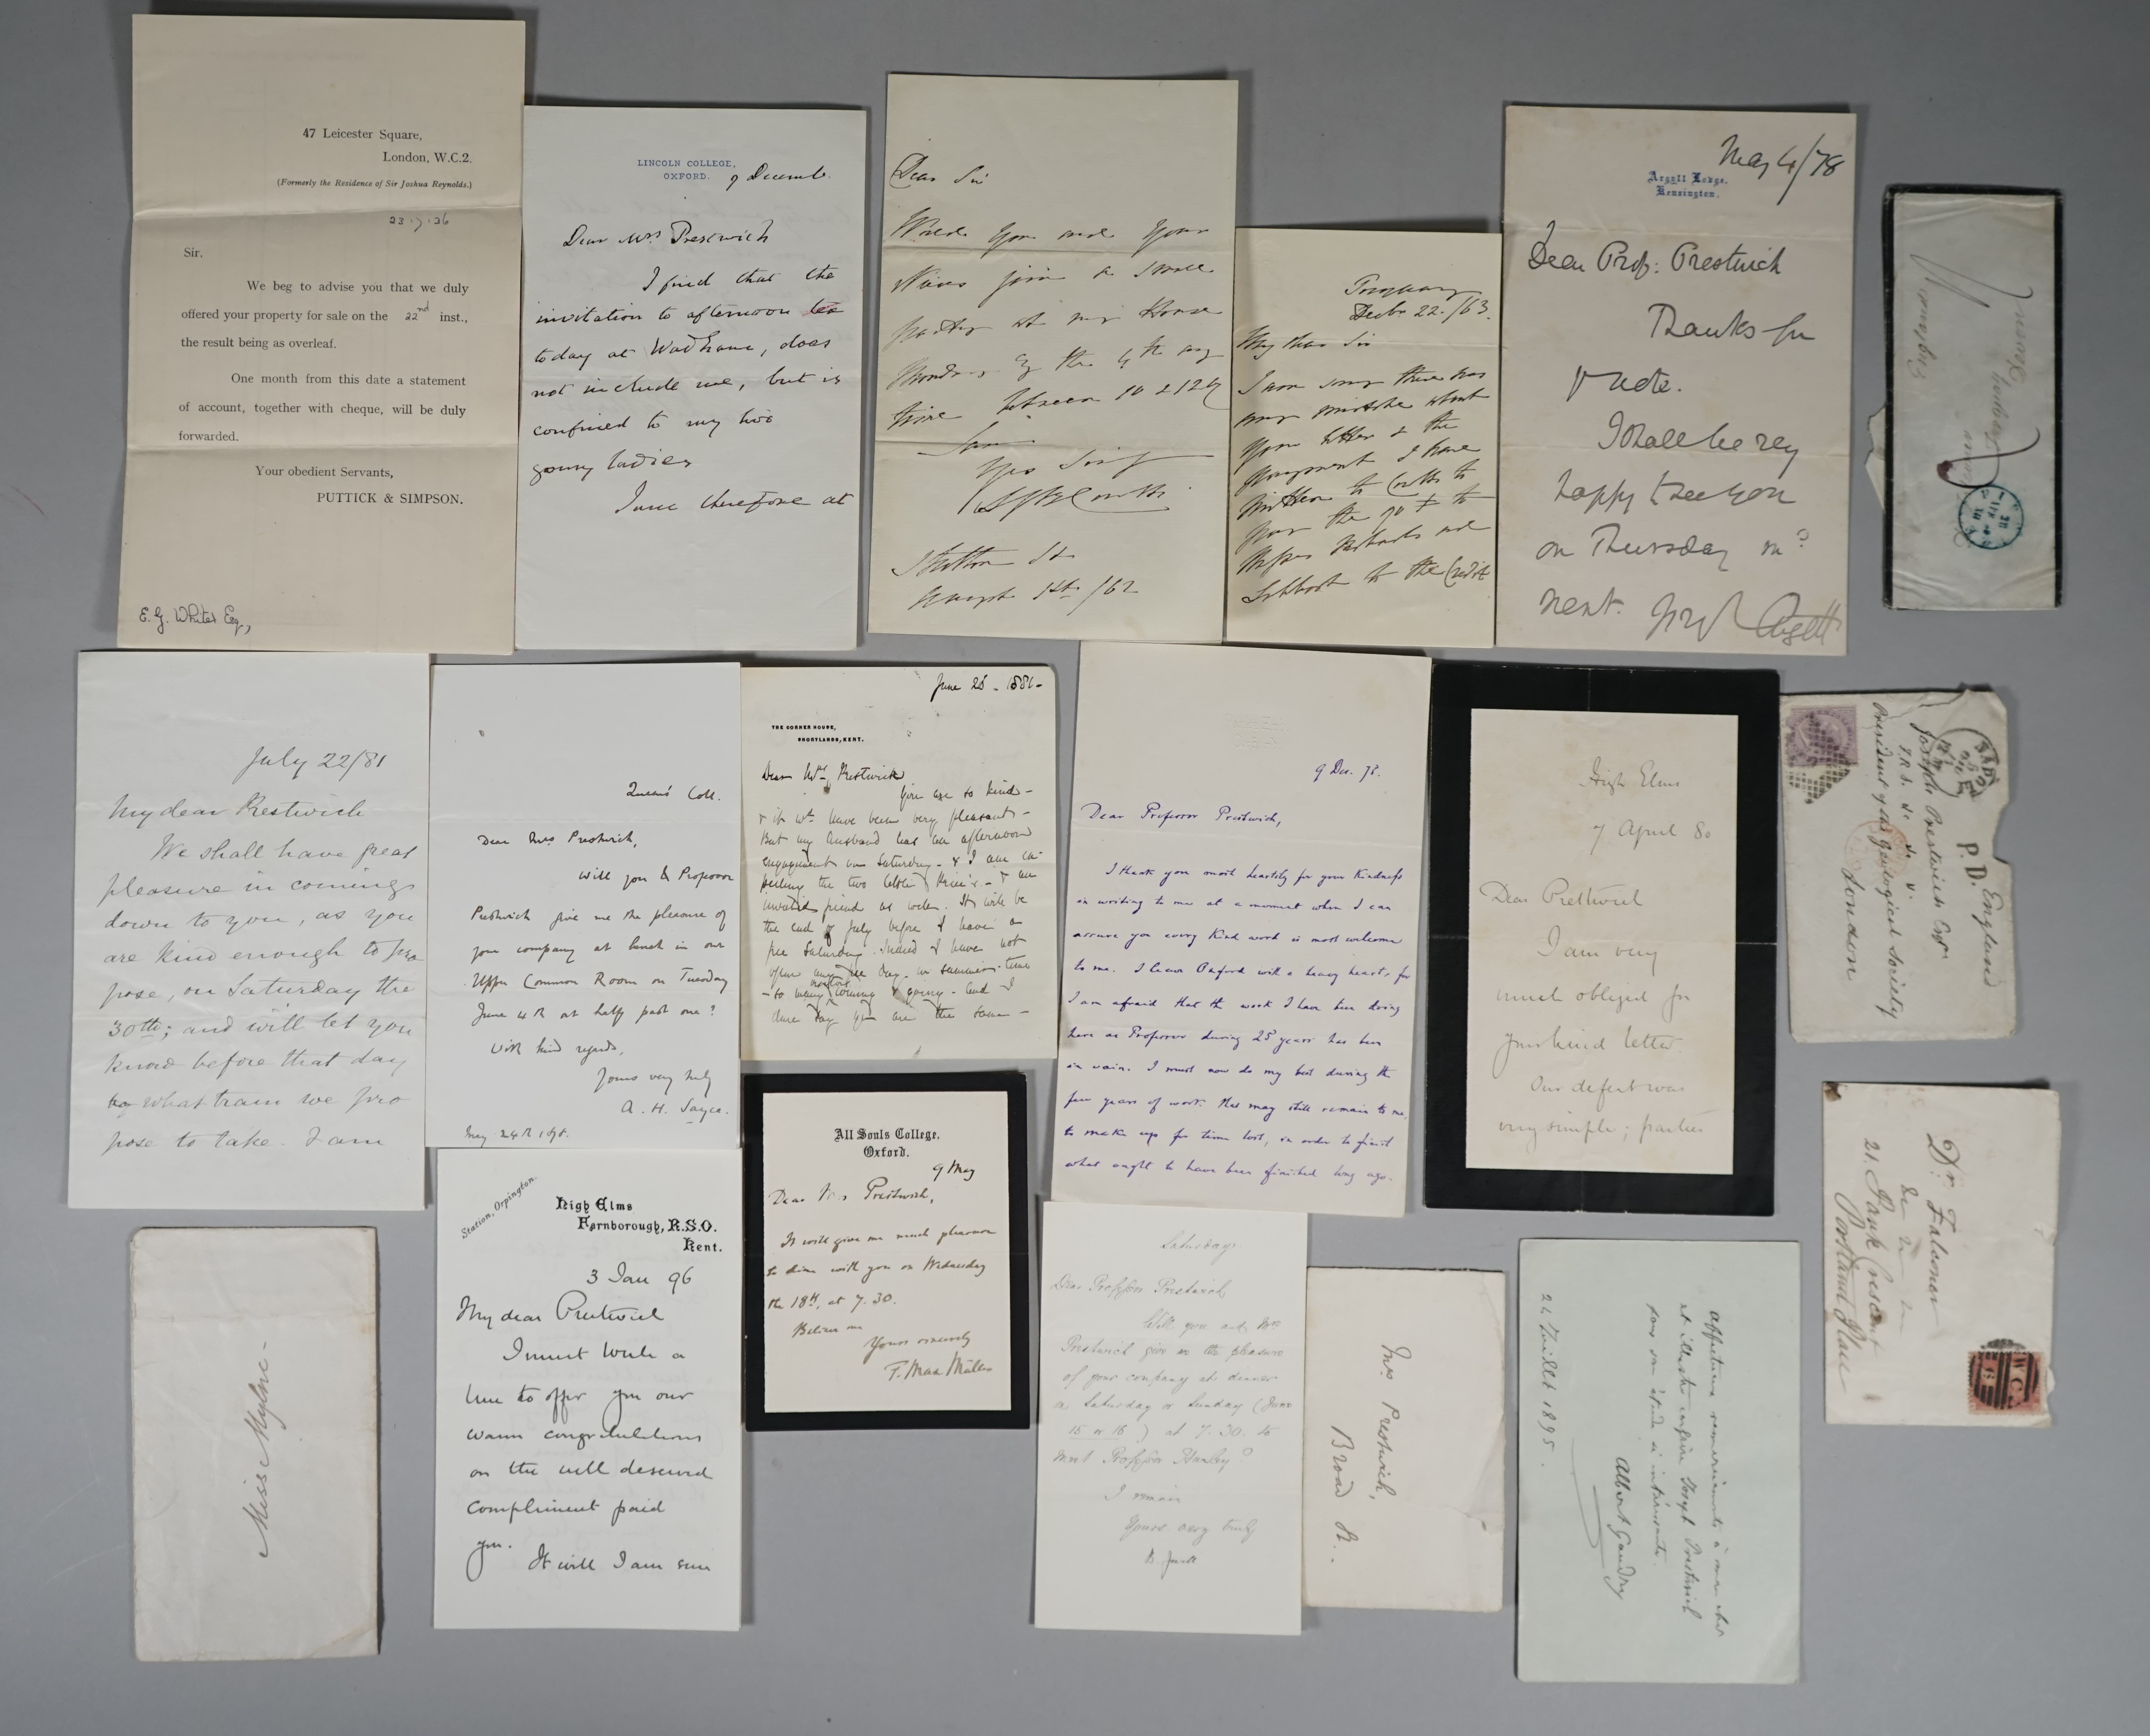 47 Leicester Square,
London, W.C.2.
(Formerly the Residence of Sir Joshua Reynolds.)
23.7.26
Sir.
We beg to advise you that we duly
offered your property for sale on the 22nd inst.,
the result being as overleaf.
One month from this date a statement
of account, together with cheque, will be duly
forwarded.
Your obedient Servants,
PUTTICK & SIMPSON.
E. G. White Esq,
LINCOLN COLLEGE,
OXFORD.
9 Decemb.
Dear Mrs Prestwich
I find that the
invitation to afternoon tea
today at Wadham, does
not include me, but is
confined to my two
young ladies
I was therefore at
Dear Sir
Would you and your
Niece join a small
party at my House
Monday the 4th any
time between 10 & 12
I am
Stratton St
1st /62
Torquay
Decbr 22. /63.
My dear Sir
I am sorry there was
any mistake about
your letter & the
payment I have
written to Coutts to
pay the to
to the Credit
May 4/78
Argyll Lodge.
Kensington.
Dear Prof: Prestwich
Thanks for
note.
I shall be very
happy to see you
on Thursday
next.
Argyll
July 22/81
My dear Prestwich
We shall have great
pleasure in coming
down to you, as you
are kind enough to pro
pose, on Saturday the
30th; and will let you
know before that day
by what train we pro
pose to take. I am
Queen's Coll.
Dear Mrs Prestwich,
Will you & Professor
Prestwich give me the pleasure of
your company at lunch in our
Upper Common Room on Tuesday
June 4th at half past one?
With kind regards,
Yours very truly
A. H. Sayce.
May 24th
June 28 - 1881-
THE CORNER HOUSE,
SHORTLANDS, KENT.
Dear Mrs Prestwich
You are so kind -
& it wd have been very pleasant -
But my husband has an afternoon
engagement on Saturday - & I am ex-
pecting the two little - & an
invalid friend as well. It will be
the end of July before I have a
free Saturday. Indeed I have not
often any free day - in summer-time
- so many coming & going - and I
dare say you are the same -
9 Dec. 75.
Dear Professor Prestwich,
I thank you most heartily for your kindness
in writing to me at a moment when I can
assure you every kind word is most welcome
to me. I leave Oxford with a heavy heart, for
I am afraid that the work I have been doing
here as Professor during 25 years has been
in vain. I must now do my best during the
few years of work that may still remain to me,
to make up for time lost, in order to finish
what ought to have been finished long ago.
High Elms
7 April 80
Dear Prestwich
I am very
much obliged for
your kind letter.
Our defeat was
very simple; parties
England
P.D.
Joseph Prestwich Esqr
F.R.S. &c &c
President of the Geological Society
London
Dr. Falconer
&c &c &c
21. Park Crescent
Portland Place
Miss
Station, Orpington.
High Elms
Farnborough, R.S.O.
Kent.
3 Jan 96
My dear Prestwich
I must write a
line to offer you our
warm congratulations
on the well deserved
compliment paid
you.
It will I am sure
All Souls College.
Oxford.
9 May
Dear Mrs Prestwich,
It will give me much pleasure
to dine with you on Wednesday
the 18th, at 7.30.
Believe me
Yours sincerely
F. Max Müller
Saturday.
Dear Professor Prestwich
Will you and Mrs
Prestwich give us the pleasure
of your company at dinner
on Saturday or Sunday (June
15 or 16) at 7.30. to
meet Professor Huxley?
I remain
Yours very truly
B. Jowett
Mrs Prestwich,
Broad St.
Affectueux remerciements à mon cher
et illustre confrère Joseph Prestwich
pour son étude si intéressante.
Albert Gaudry
24 Juillet 1895.